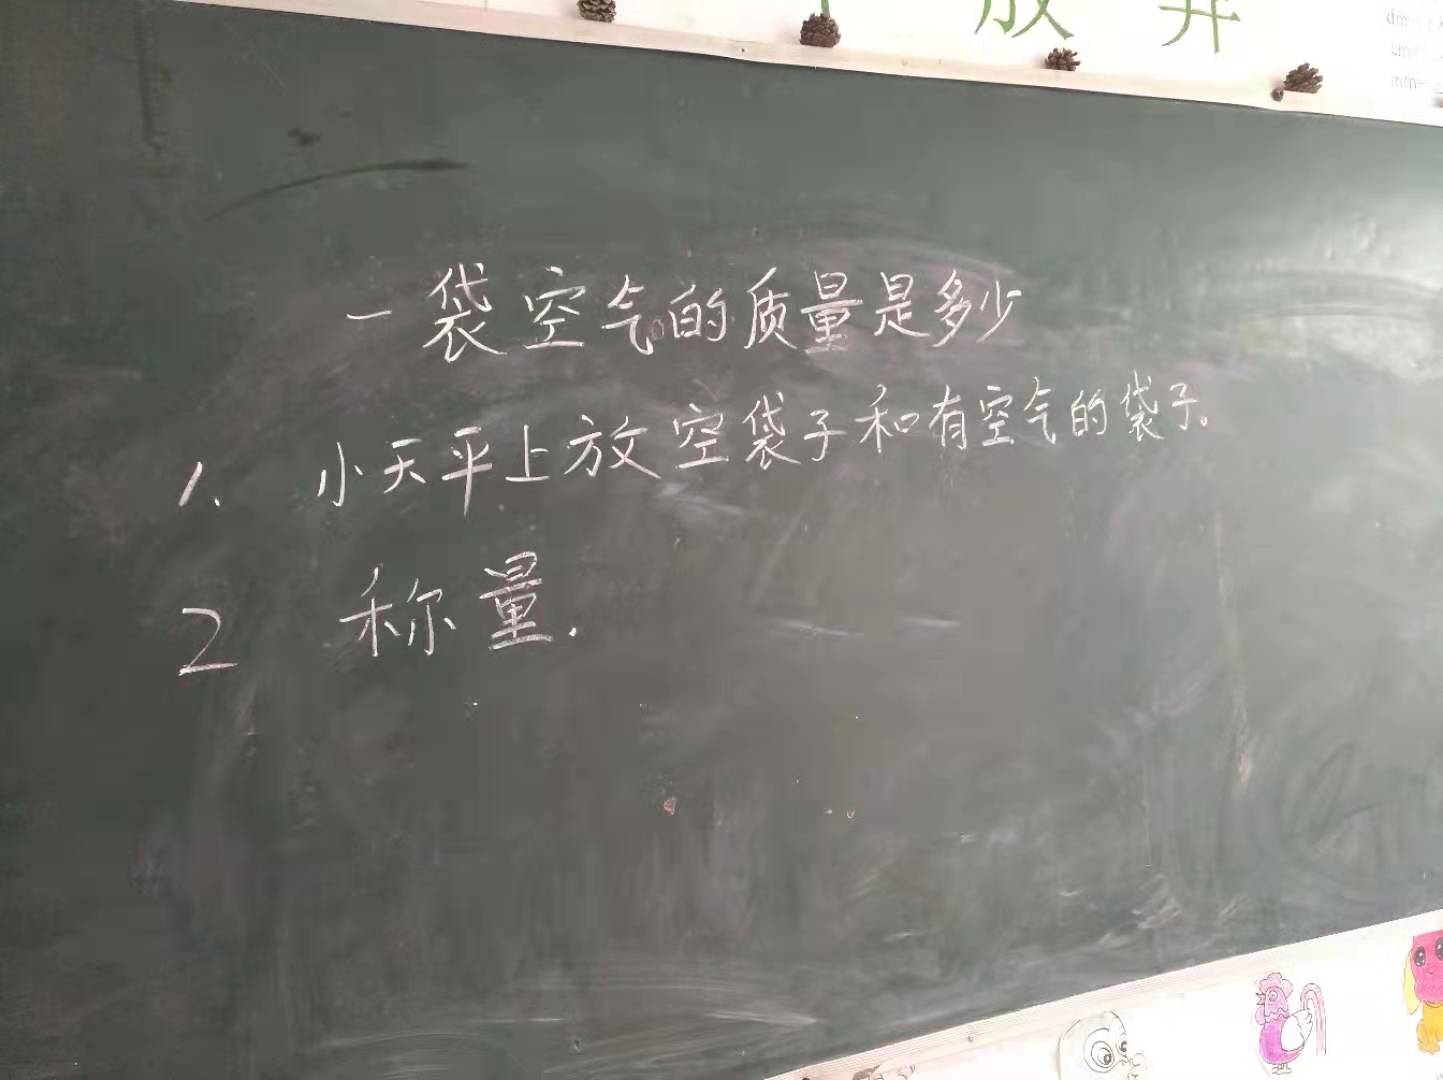 放弃
一袋空气的质量是多少
1. 小天平上放空袋子和有空气的袋子。
2 称量.